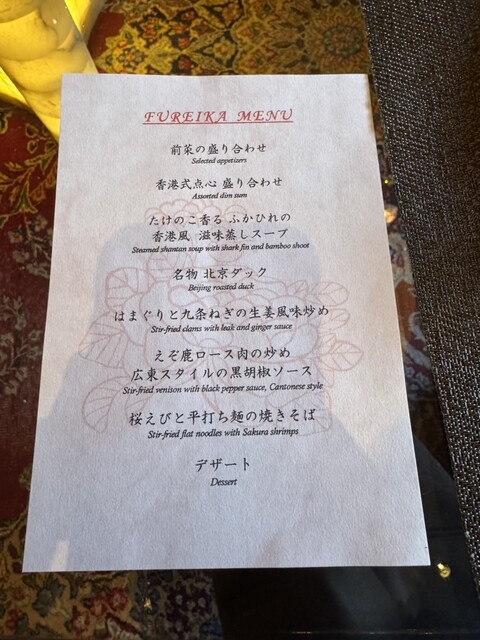 FUREIKA MENU
前菜の盛り合わせ
Selected appetizers
香港式点心 盛り合わせ
Assorted dim sum
たけのこ香る ふかひれの
香港風 滋味蒸しスープ
Steamed shantan soup with shark fin and bamboo shoot
名物 北京ダック
Beijing roasted duck
はまぐりと九条ねぎの生姜風味炒め
Stir-fried clams with leak and ginger sauce
えぞ鹿ロース肉の炒め
広東スタイルの黒胡椒ソース
Stir-fried venison with black pepper sauce, Cantonese style
桜えびと平打ち麺の焼きそば
Stir-fried flat noodles with Sakura shrimps
デザート
Dessert